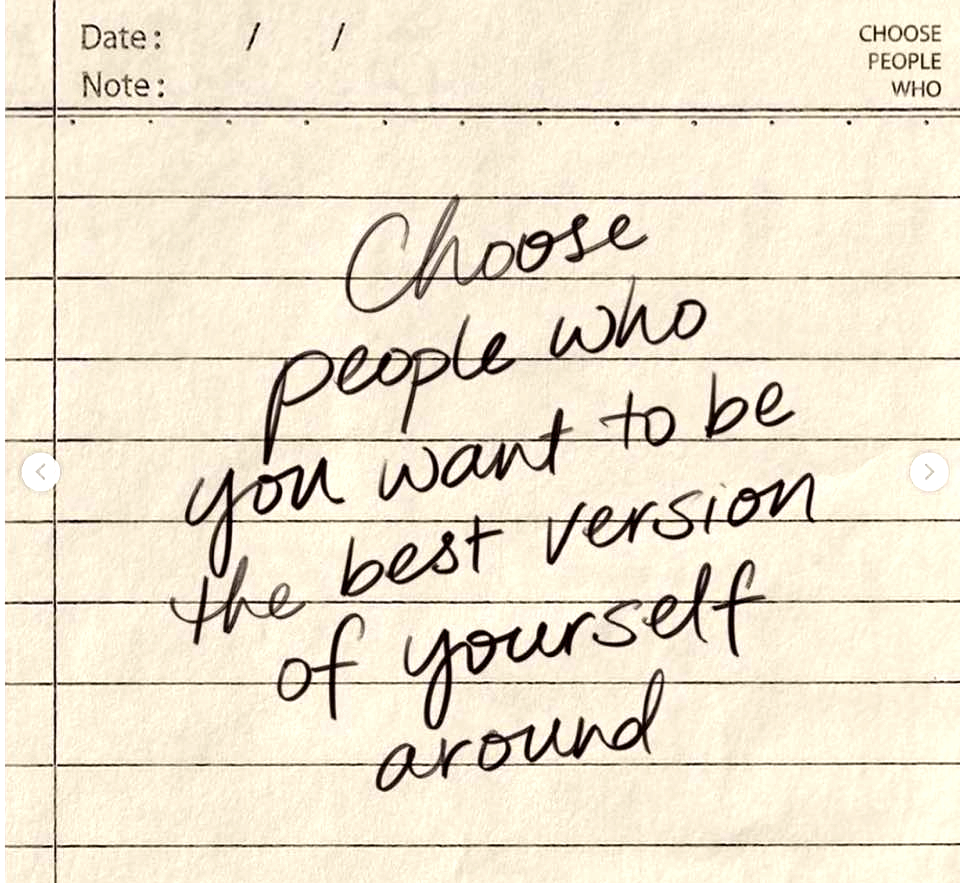 Date: / /
Note:
CHOOSE
PEOPLE
WHO
Choose
people who
you want to be
the best version
of yourself
around